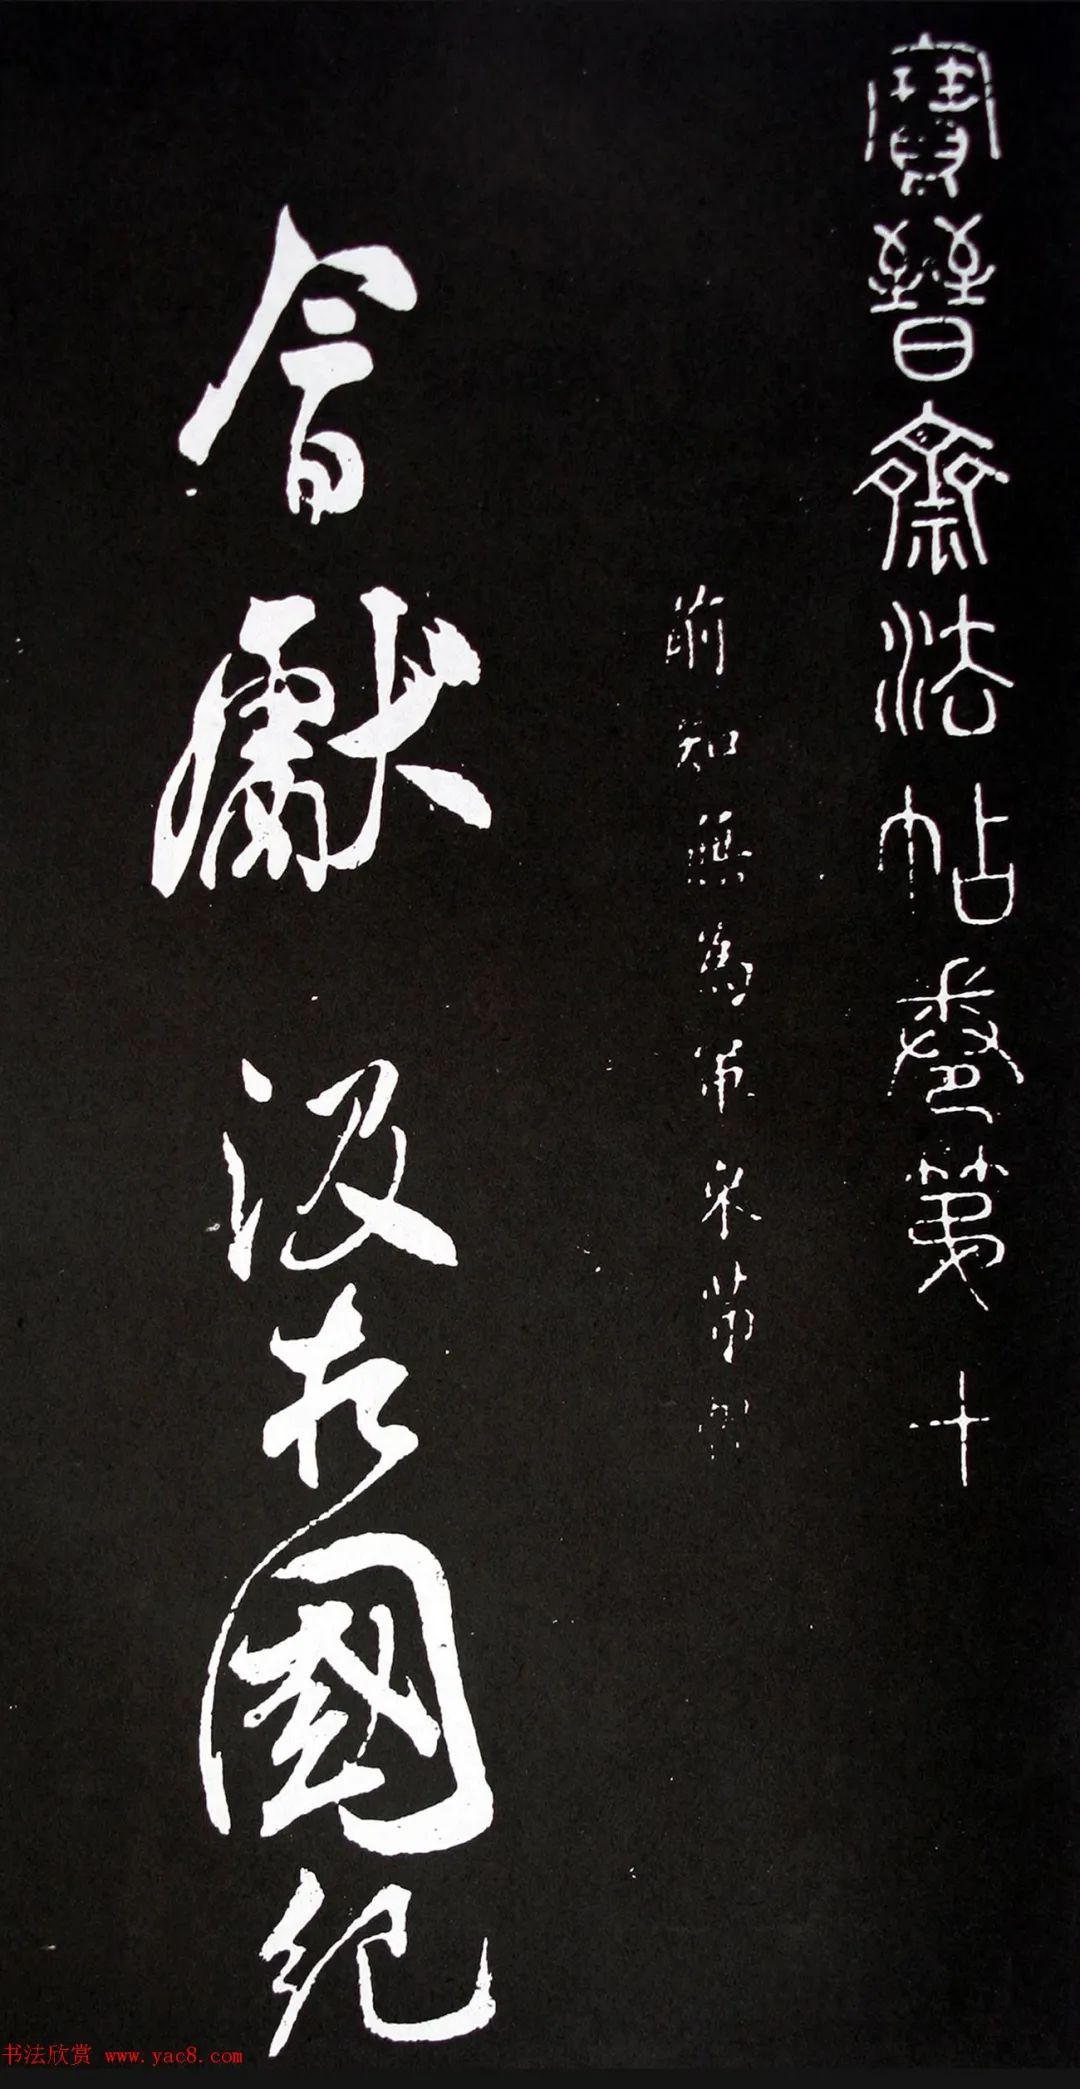 寶晉齋法帖卷第十
前知無為軍米芾書
會獻汲於國紀
书法欣赏 www.yac8.com